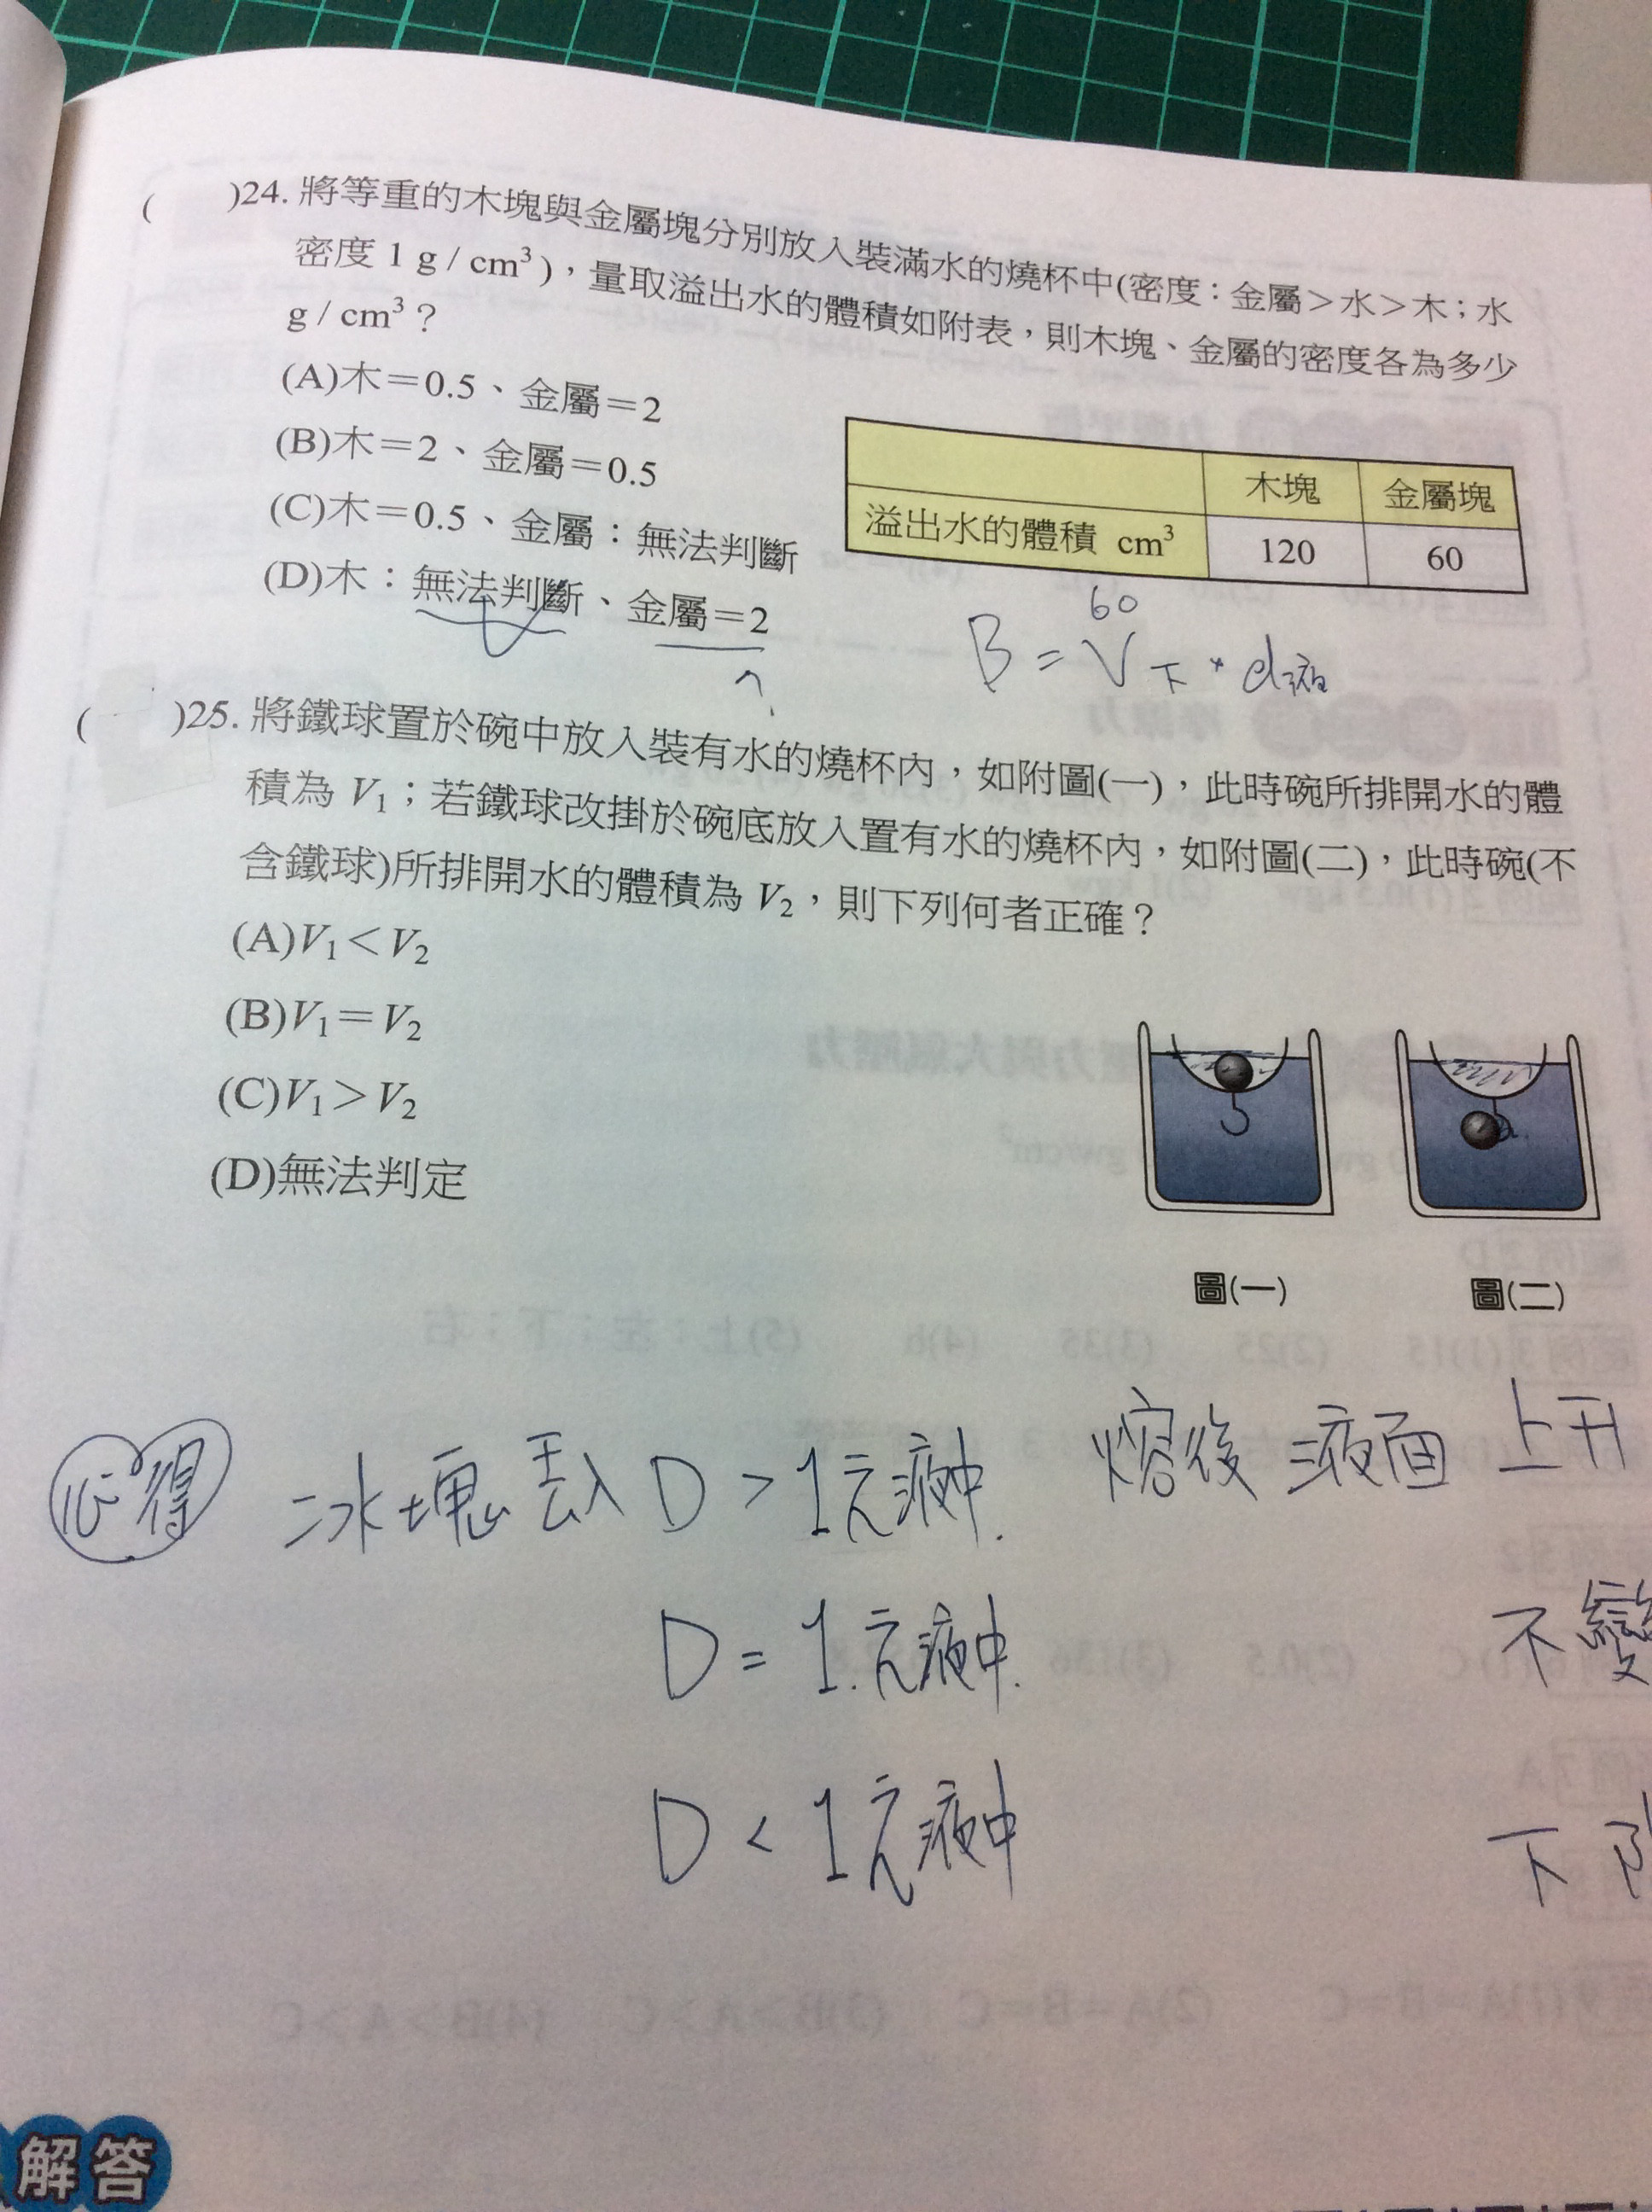 ( )24. 將等重的木塊與金屬塊分別放入裝滿水的燒杯中(密度：金屬＞水＞木；水
密度 1 g / cm³ )，量取溢出水的體積如附表，則木塊、金屬的密度各為多少
g / cm³？
(A)木＝0.5、金屬＝2
(B)木＝2、金屬＝0.5
(C)木＝0.5、金屬：無法判斷
(D)木：無法判斷、金屬＝2
木塊 金屬塊
溢出水的體積 cm³ 120 60
60
B = V下 * d液
( )25. 將鐵球置於碗中放入裝有水的燒杯內，如附圖(一)，此時碗所排開水的體
積為 V₁；若鐵球改掛於碗底放入置有水的燒杯內，如附圖(二)，此時碗(不
含鐵球)所排開水的體積為 V₂，則下列何者正確？
(A)V₁＜V₂
(B)V₁＝V₂
(C)V₁＞V₂
(D)無法判定
圖(一) 圖(二)
心得 冰塊丟入 D > 1之液中. 熔後 液面 上升
D = 1之液中. 不變
D < 1之液中 下
解答